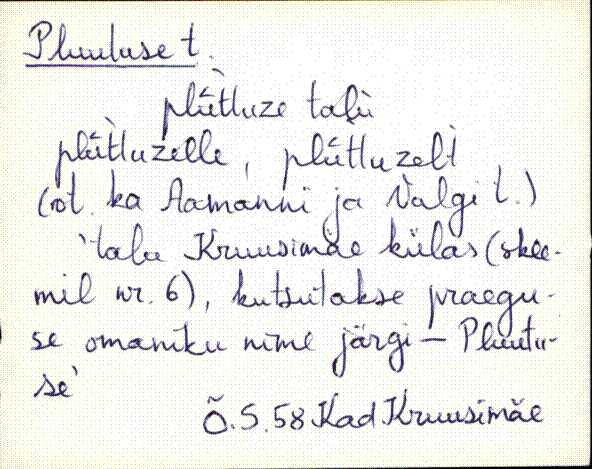 Pluutuse t.
plūttuze talu
plūttuzelle, plūttuzelt
(vt. ka Aamanni ja Valgi t.)
'talu Kruusimäe külas (skee-
mil nr. 6), kutsutakse praegu-
se omaniku nime järgi — Pluutu-
se'
Õ.S.58 Kad Kruusimäe